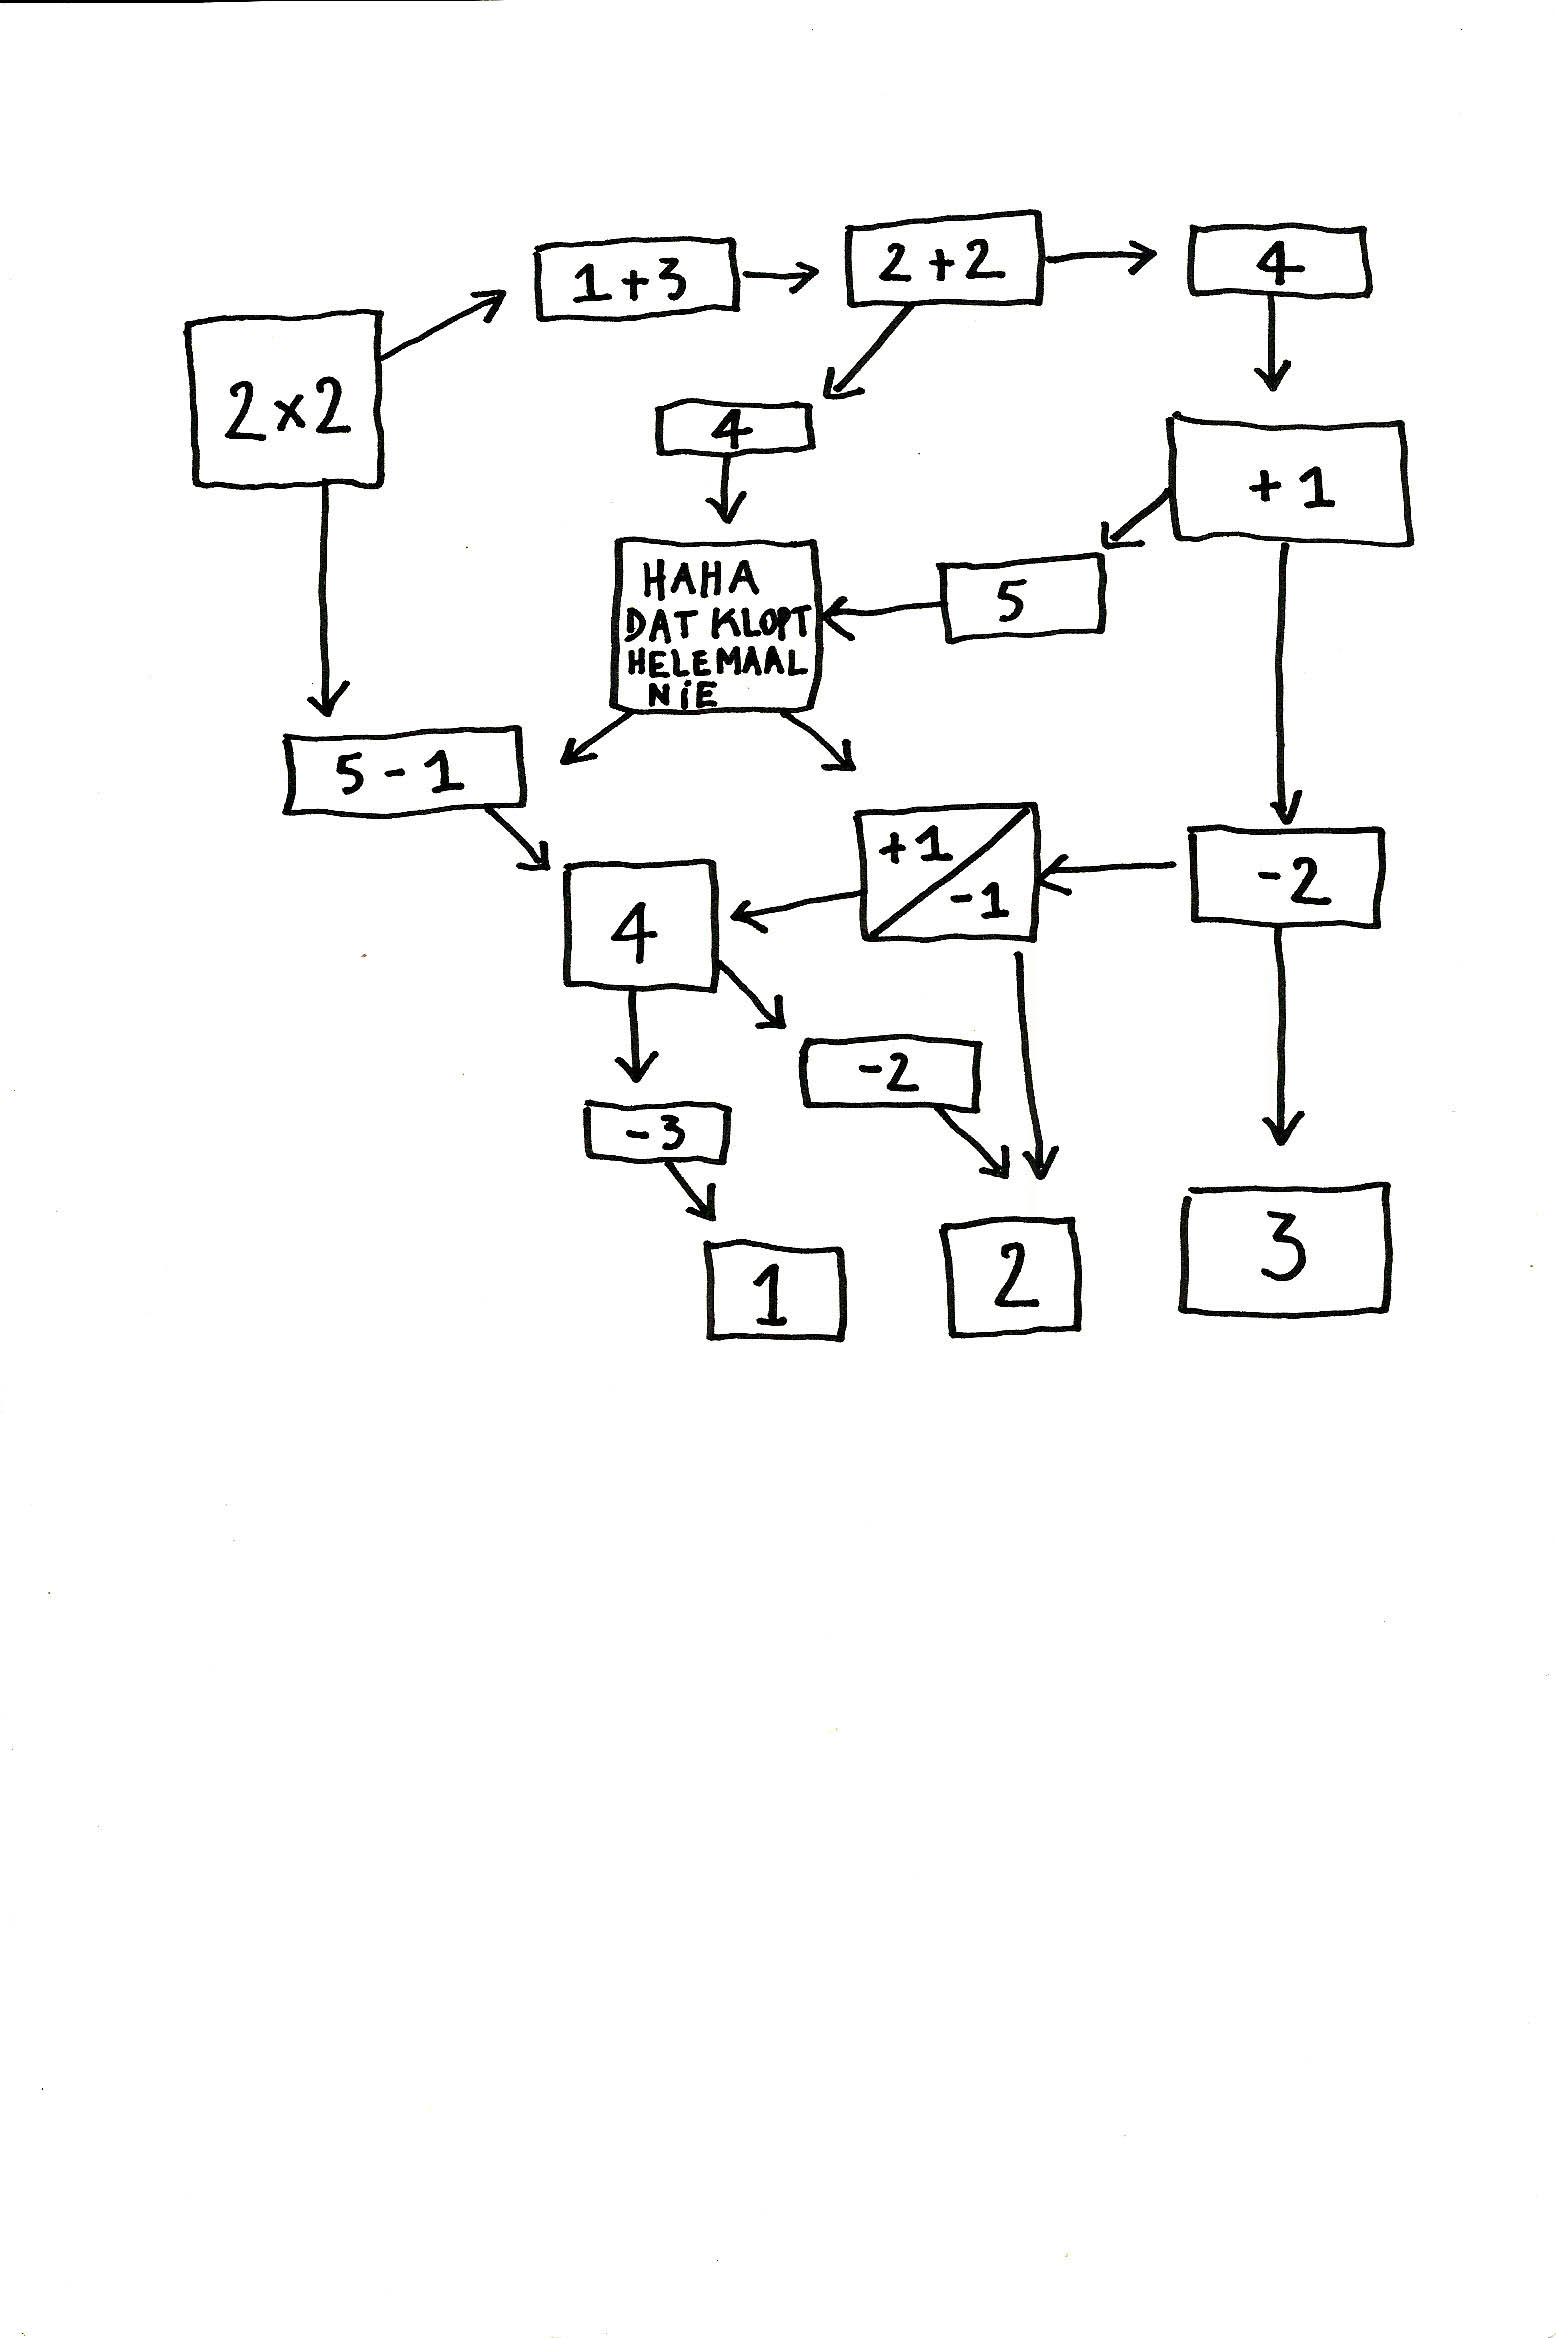 1+3
2+2
4
2×2
4
+1
HAHA
DAT KLOPT
HELEMAAL
NiE
5
5-1
+1
-1
-2
4
-2
-3
1
2
3